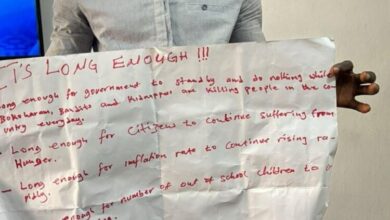 IT'S LONG ENOUGH !!!
Long enough for government to standby and do nothing while
Bokoharam, Bandits and Kidnappers are killing people in the co-
untry everyday.
- Long enough for Citizens to continue suffering from
Hunger.
- Long enough for inflation rate to continue rising ra-
pidly.
- Long enough for number of out of school children to